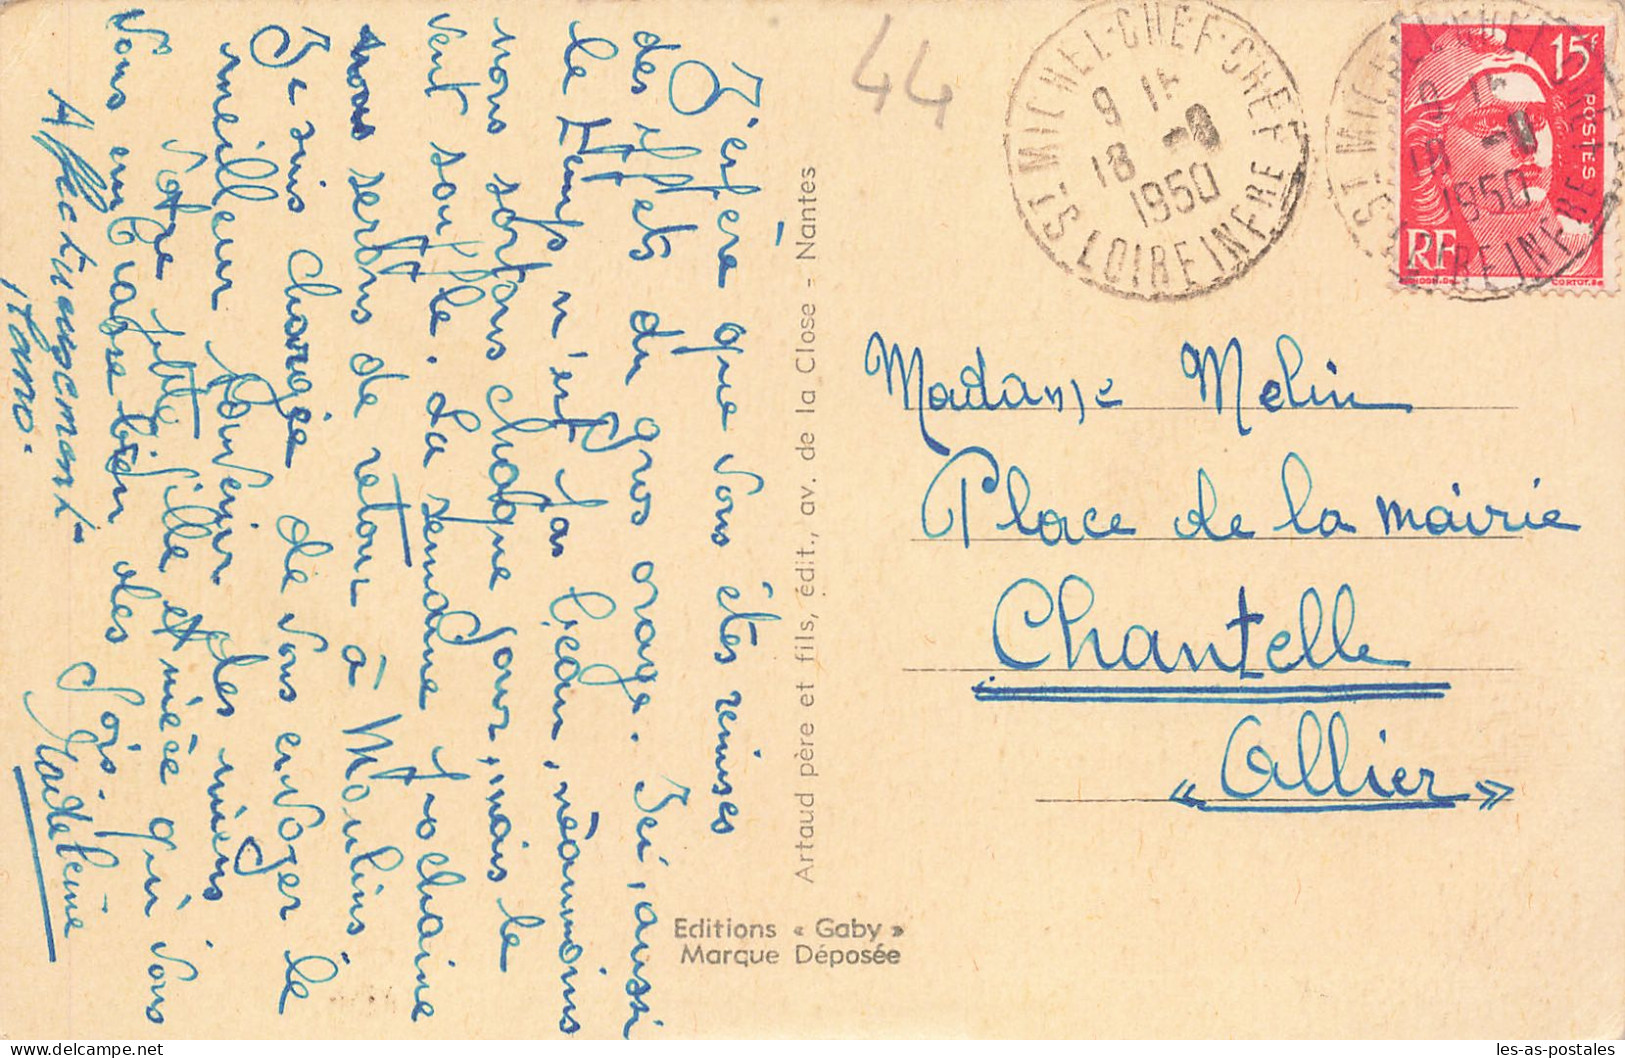 J'espère que vous êtes remises
des effets du gros orage. Ici, aussi
le temps n'est pas beau, néanmoins
nous sortons chaque jour, mais le
vent souffle. La semaine prochaine
nous serons de retour à Moulins.
Je suis chargée de vous envoyer le
meilleur souvenir des miens
Votre petite fille et nièce qui vous
vous embrasse bien des fois.
Affectueusement
Madeleine
44
ST MICHEL-CHEF-CHEF
9 15
18 -8
1950
LOIRE INFRE
ST MICHEL-CHEF-CHEF
1950
LOIRE INFRE
15c
POSTES
RF
CORTOT.Sc
Madame Melin
Place de la mairie
Chantelle
« Allier »
Artaud père et fils, édit., av. de la Close - Nantes
Editions « Gaby »
Marque Déposée
les-as-postales